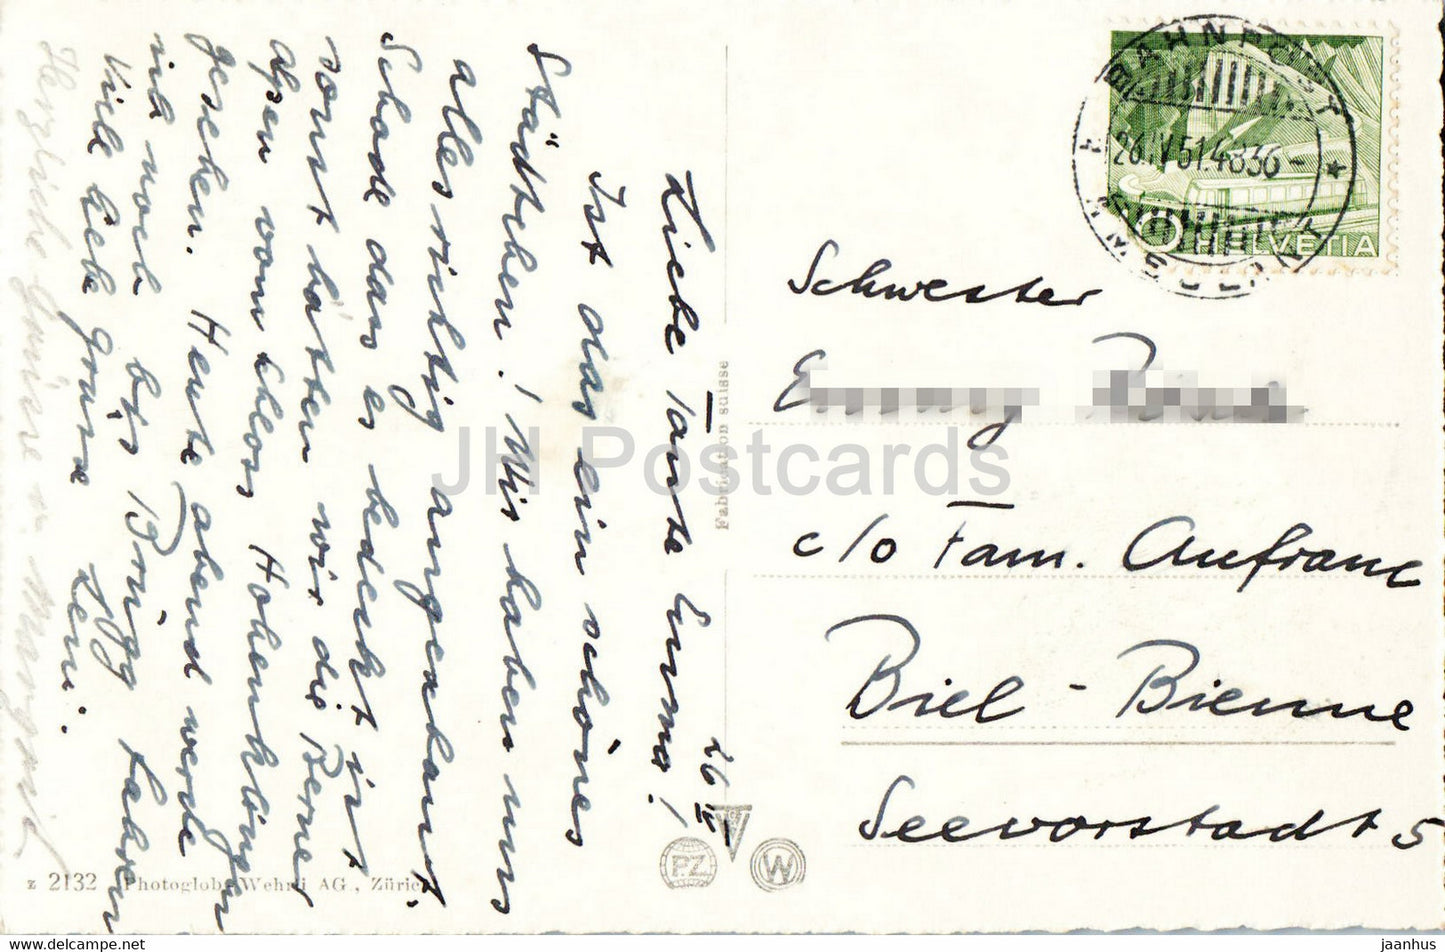 26 IV
Liebe Tante Emma!
Ist das ein schönes
Städtchen! Wir haben uns
alles richtig angeschaut.
Schade dass es bedeckt ist
sonst hätten wir die Berner
alpen vom Schloss Hohenklingen
gesehen. Heute abend werde
ich noch bis Brugg fahren
Viele liebe Grüsse Leni.
Herzliche Grüsse
Fabrication suisse
z 2132 Photoglob-Wehrli AG., Zürich
PZ
W
BAHNPOST
26.IV.51.4836-
HELVETIA
Schwester
c/o Fam. Aufranc
Biel - Bienne
Seevorstadt 5
JH Postcards
www.delcampe.net
jaanhus